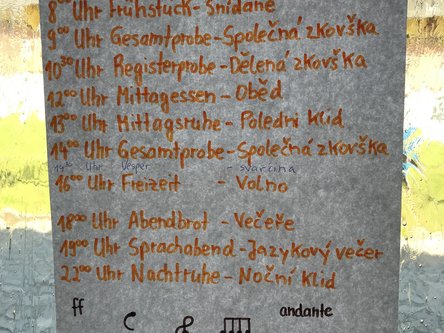 8⁰⁰ Uhr Frühstück - Snídaně
9⁰⁰ Uhr Gesamtprobe - Společná zkouška
10³⁰ Uhr Registerprobe - Dělená zkouška
12⁰⁰ Uhr Mittagessen - Oběd
13⁰⁰ Uhr Mittagsruhe - Polední klid
14⁰⁰ Uhr Gesamtprobe - Společná zkouška
Uhr Vesper - svačina
16⁰⁰ Uhr Freizeit - Volno
18⁰⁰ Uhr Abendbrot - Večeře
19⁰⁰ Uhr Sprachabend - Jazykový večer
22⁰⁰ Uhr Nachtruhe - Noční klid
ff andante